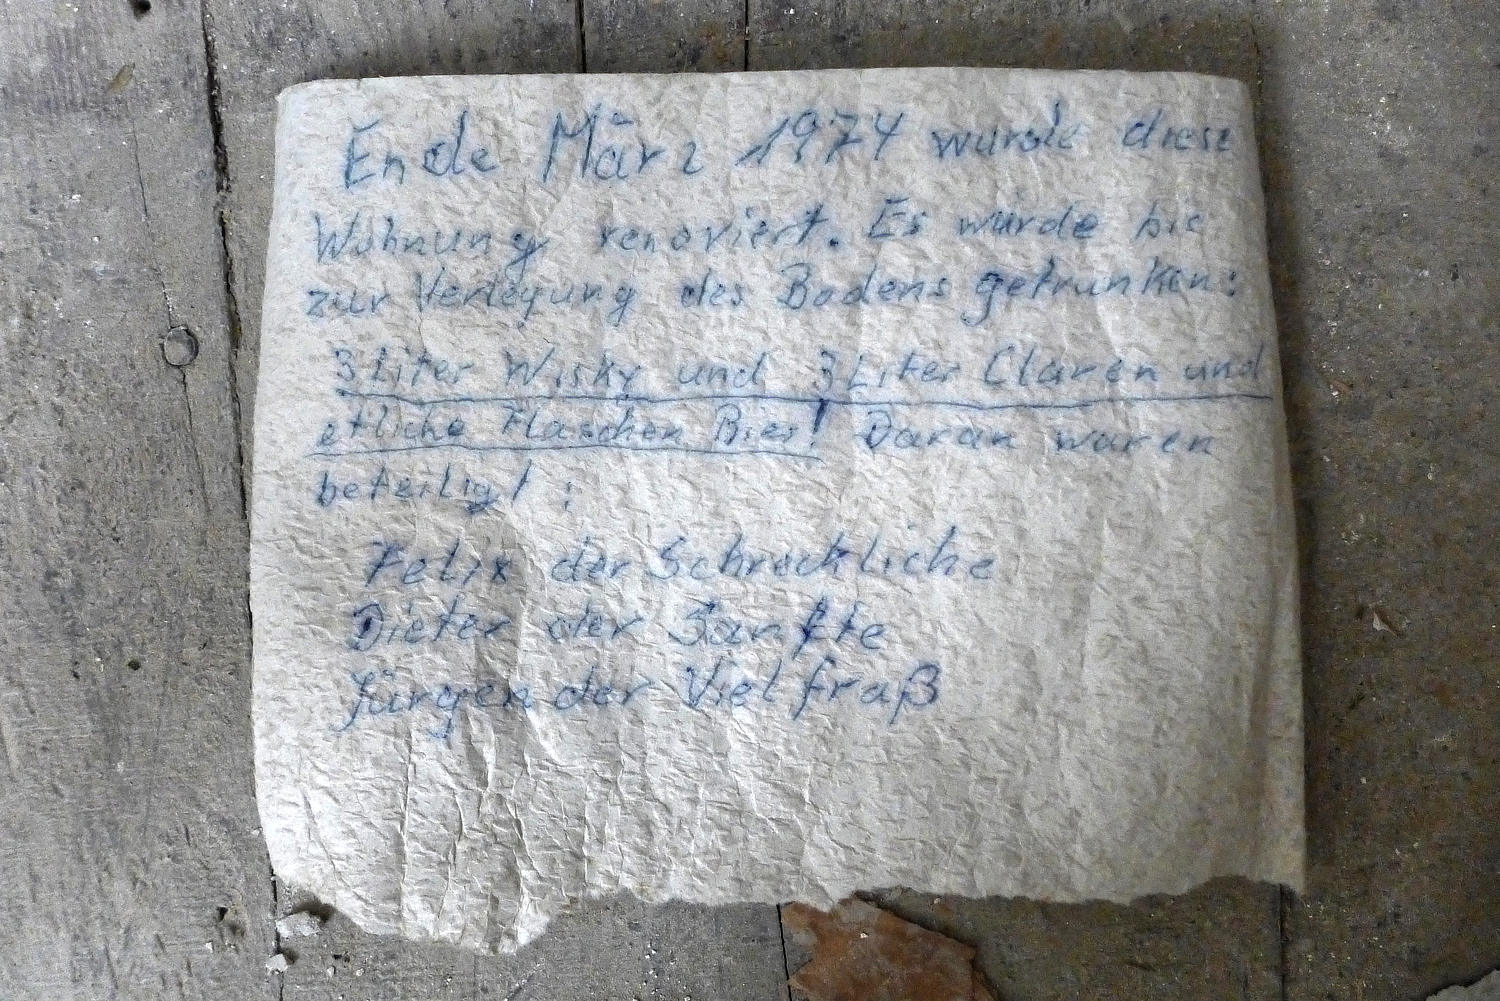 Ende März 1974 wurde diese
Wohnung renoviert. Es wurde bis
zur Verlegung des Bodens getrunken:
3 Liter Wisky und 3 Liter Claren und
etliche Flaschen Bier! Daran waren
beteiligt:
Felix der Schreckliche
Dieter der Sanfte
Jürgen der Vielfraß